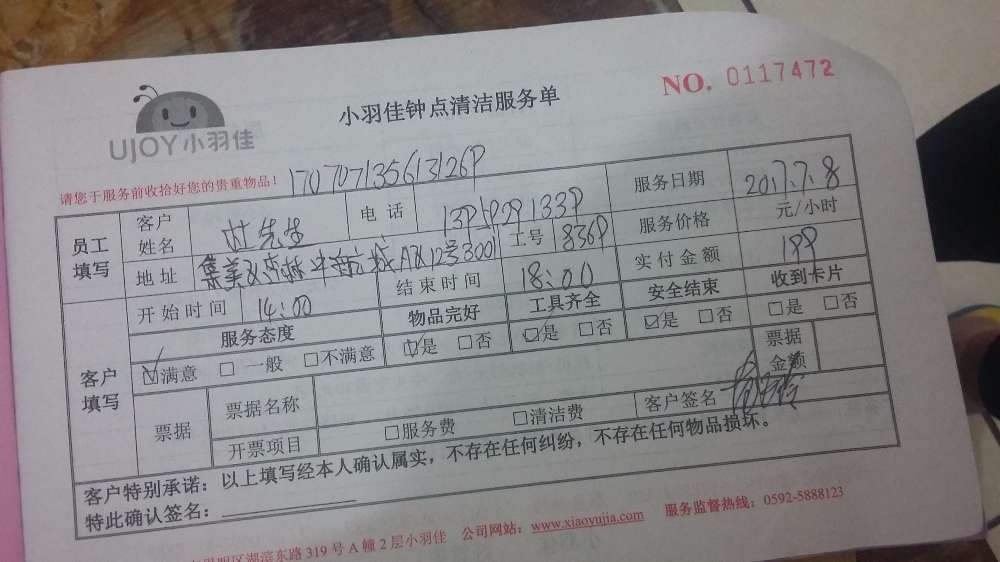 UJOY小羽佳
小羽佳钟点清洁服务单
NO. 0117472
请您于服务前收拾好您的贵重物品！
员工填写 客户姓名 杜先生 电话 服务日期 2017.7.8
地址 集美区杏林 A区12号300 工号 服务价格 元/小时
开始时间 14:00 结束时间 18:00 实付金额 199
客户填写 服务态度 物品完好 工具齐全 安全结束 收到卡片
☑满意 □一般 □不满意 ☑是 □否 ☑是 □否 ☑是 □否 □是 □否
票据 票据名称 票据金额
开票项目 □服务费 □清洁费 客户签名
客户特别承诺：以上填写经本人确认属实，不存在任何纠纷，不存在任何物品损坏。
特此确认签名：
明区湖滨东路319号A幢2层小羽佳 公司网站：www.xiaoyujia.com 服务监督热线：0592-5888123